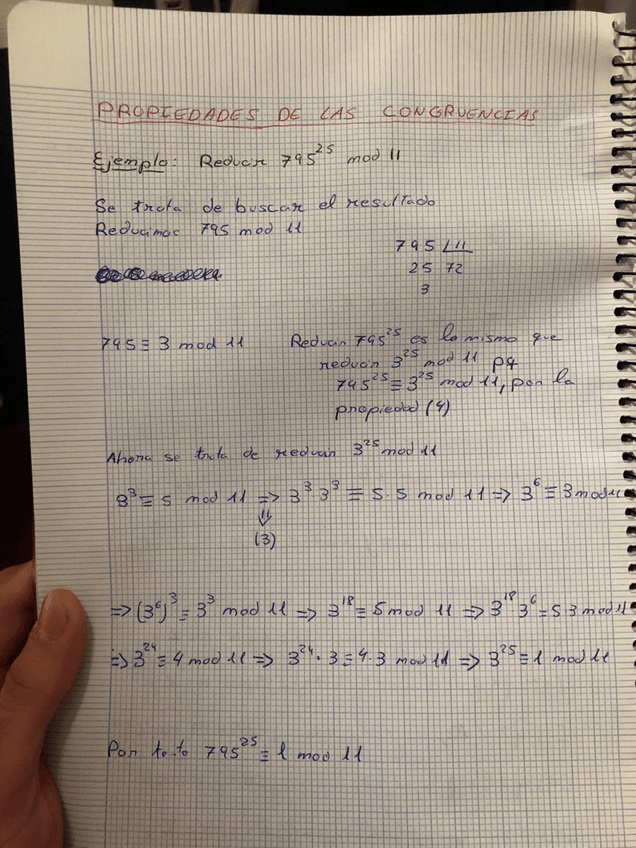 PROPIEDADES DE LAS CONGRUENCIAS
Ejemplo: Reducir 795^25 mod 11
Se trata de buscar el resultado
Reducimos 795 mod 11
795 | 11
25 72
3
795 ≡ 3 mod 11
Reducir 795^25 es lo mismo que
reducir 3^25 mod 11 pq
795^25 ≡ 3^25 mod 11, por la
propiedad (4)
Ahora se trata de reducir 3^25 mod 11
3^3 ≡ 5 mod 11 => 3^3 3^3 ≡ 5·5 mod 11 => 3^6 ≡ 3 mod 11
⇓
(3)
=> (3^6)^3 ≡ 3^3 mod 11 => 3^18 ≡ 5 mod 11 => 3^18 3^6 ≡ 5 3 mod 11
=> 3^24 ≡ 4 mod 11 => 3^24 · 3 ≡ 4·3 mod 11 => 3^25 ≡ 1 mod 11
Por tanto 795^25 ≡ 1 mod 11